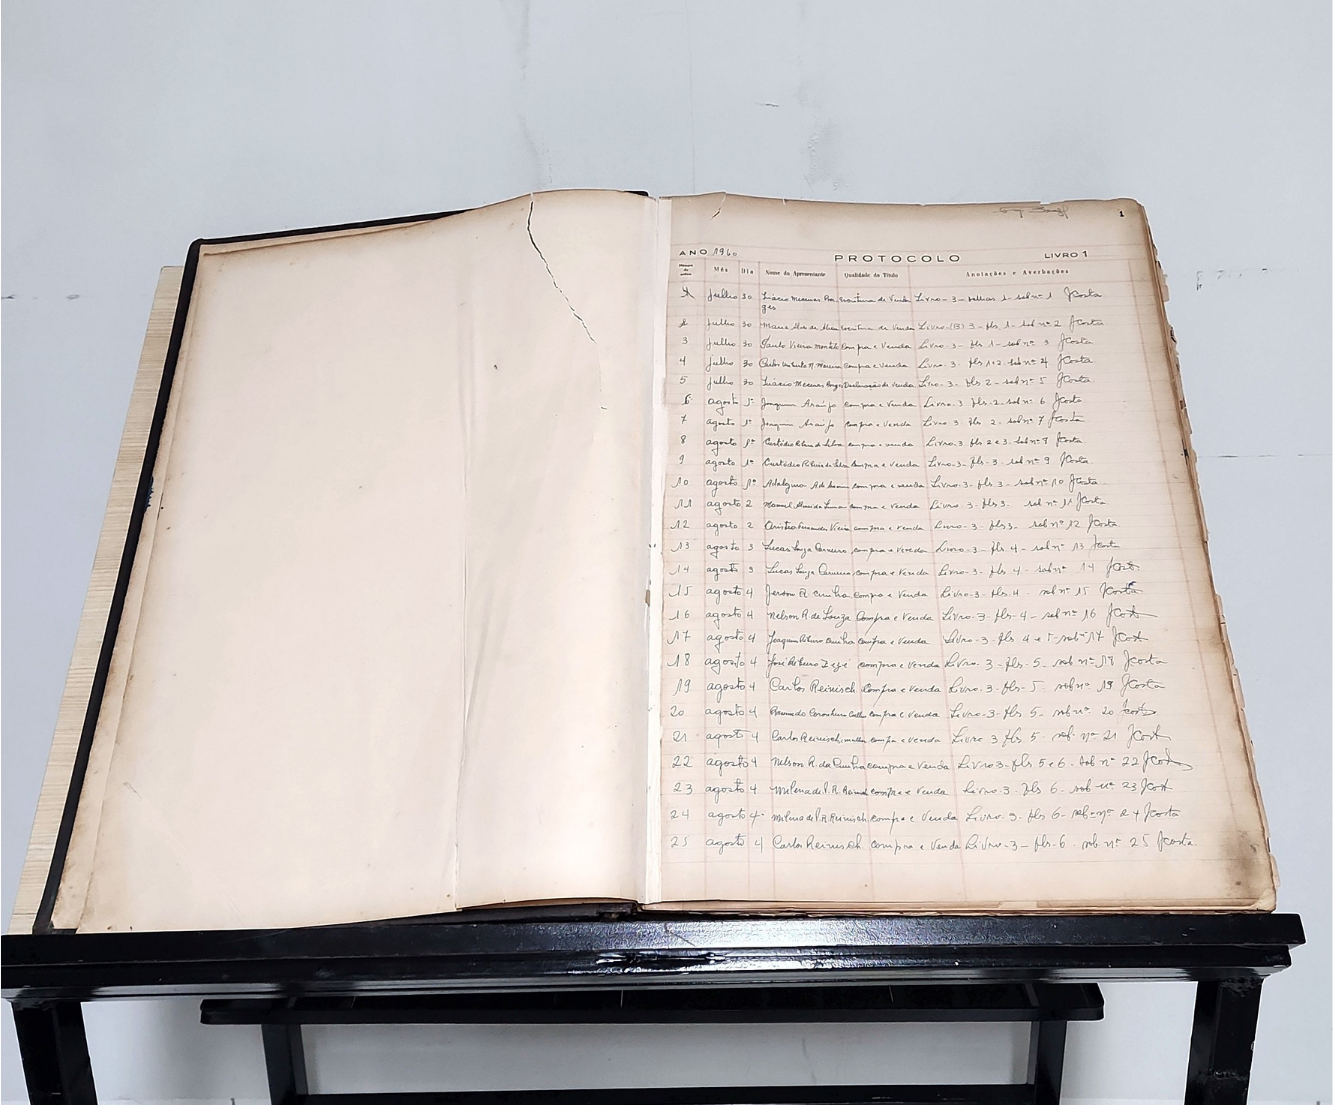 1
ANO 1960 PROTOCOLO LIVRO 1
Mês Dia Nome do Apresentante Qualidade do Título Anotações e Averbações
julho 30 de Venda Livro - 3 - folhas 1 - sob nº 1 JCosta
2 julho 30 de Venda Livro (3) 3 - fls 1 - sob nº 2 JCosta
3 julho 30 Paulo Vieira compra e Venda Livro - 3 - fls 1 - sob nº 3 JCosta
4 julho 30 compra e Venda Livro - 3 - fls 1 e 2 sob nº 4 JCosta
5 julho 30 de Venda Livro - 3 fls 2 - sob nº 5 JCosta
6 agosto 1º Joaquim Araújo compra e Venda Livro - 3 fls - 2 - sob nº 6 JCosta
7 agosto 1º Joaquim Araújo compra e Venda Livro - 3 fls 2 - sob nº 7 JCosta
8 agosto 1º Silva compra e venda Livro - 3 fls 2 e 3 - sob nº 8 JCosta
9 agosto 1º Silva compra e Venda Livro - 3 - fls - 3 - sob nº 9 JCosta
10 agosto 1º compra e venda Livro - 3 - fls 3 - sob nº 10 JCosta
11 agosto 2 Manuel de Lima compra e Venda Livro - 3 - fls 3 - sob nº 11 JCosta
12 agosto 2 Fernandes Vieira compra e Venda Livro - 3 - fls 3 - sob nº 12 JCosta
13 agosto 3 Lucas Carneiro compra e Venda Livro - 3 - fls 4 - sob nº 13 JCosta
14 agosto 3 Lucas Carneiro compra e Venda Livro - 3 - fls 4 - sob nº 14 JCosta
15 agosto 4 Jerson R. Cunha compra e Venda Livro - 3 - fls 4 - sob nº 15 JCosta
16 agosto 4 Nelson R. de Souza Compra e Venda Livro - 3 - fls - 4 - sob nº 16 JCosta
17 agosto 4 Joaquim Cunha compra e Venda Livro - 3 - fls 4 e 5 - sob nº 17 JCosta
18 agosto 4 José compra e Venda Livro - 3 - fls - 5 - sob nº 18 JCosta
19 agosto 4 Carlos Reinisch Compra e Venda Livro - 3 - fls - 5 - sob nº 19 JCosta
20 agosto 4 compra e Venda Livro - 3 - fls 5 - sob nº 20 JCosta
21 agosto 4 Carlos Reinisch compra e Venda Livro 3 fls 5 - sob nº 21 JCosta
22 agosto 4 Nelson R. da Cunha compra e Venda Livro 3 - fls 5 e 6 - sob nº 22 JCosta
23 agosto 4 Milena de R. compra e Venda Livro - 3 - fls 6 - sob nº 23 JCosta
24 agosto 4 Milena de R. Reinisch compra e Venda Livro - 3 - fls 6 - sob nº 24 JCosta
25 agosto 4 Carlos Reinisch compra e Venda Livro - 3 - fls - 6 - sob nº 25 JCosta